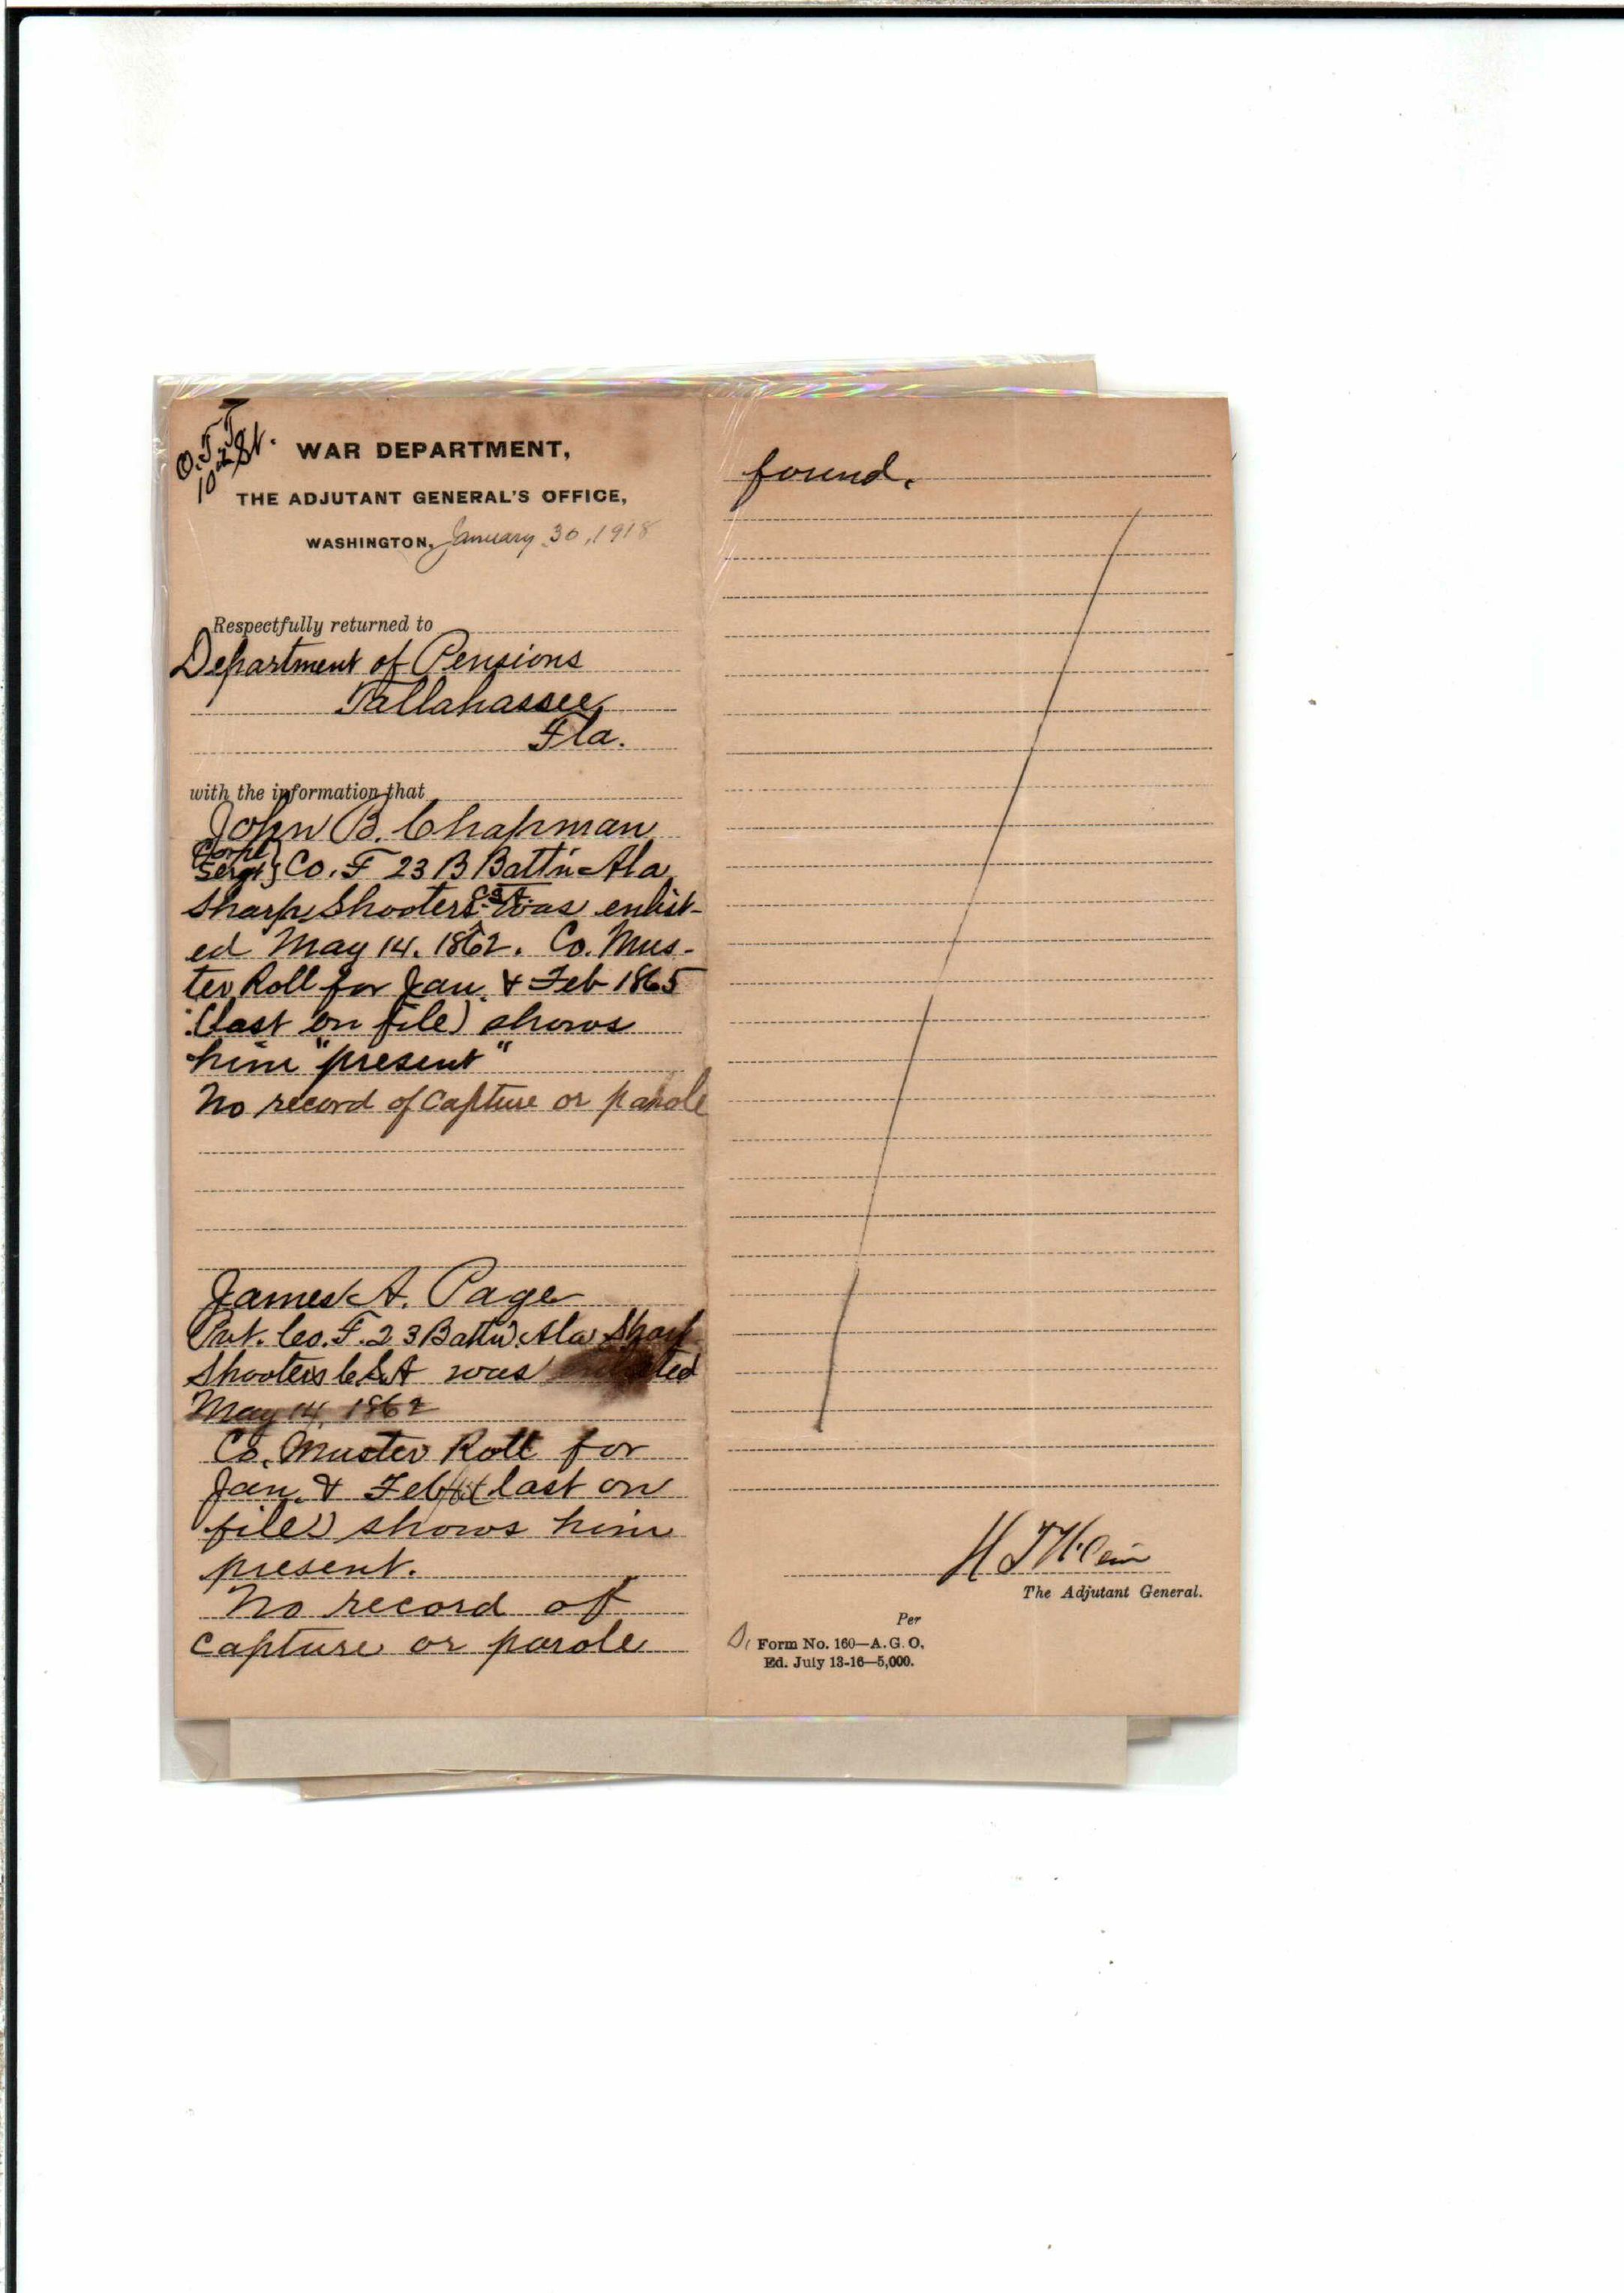 O.T.T.
10th St.
WAR DEPARTMENT,
THE ADJUTANT GENERAL'S OFFICE,
WASHINGTON, January 30, 1918
Respectfully returned to
Department of Pensions
Tallahassee,
Fla.
with the information that
John B. Chapman
Corpl
Sergt} Co. F 23 B Batt'n Ala
Sharp Shooters C.S.A. was enlist-
ed May 14. 1862. Co. Mus-
ter Roll for Jan. & Feb 1865
(last on file) shows
him "present"
No record of capture or parole
James A. Page
Pvt. Co. F. 23 Battn. Ala Sharp
Shooters C.S.A was
May 14, 1862
Co. Muster Roll for
Jan. & Feb (last on
file) shows him
present.
No record of
capture or parole
found.
The Adjutant General.
Per
Form No. 160—A.G.O.
Ed. July 13-16—5,000.